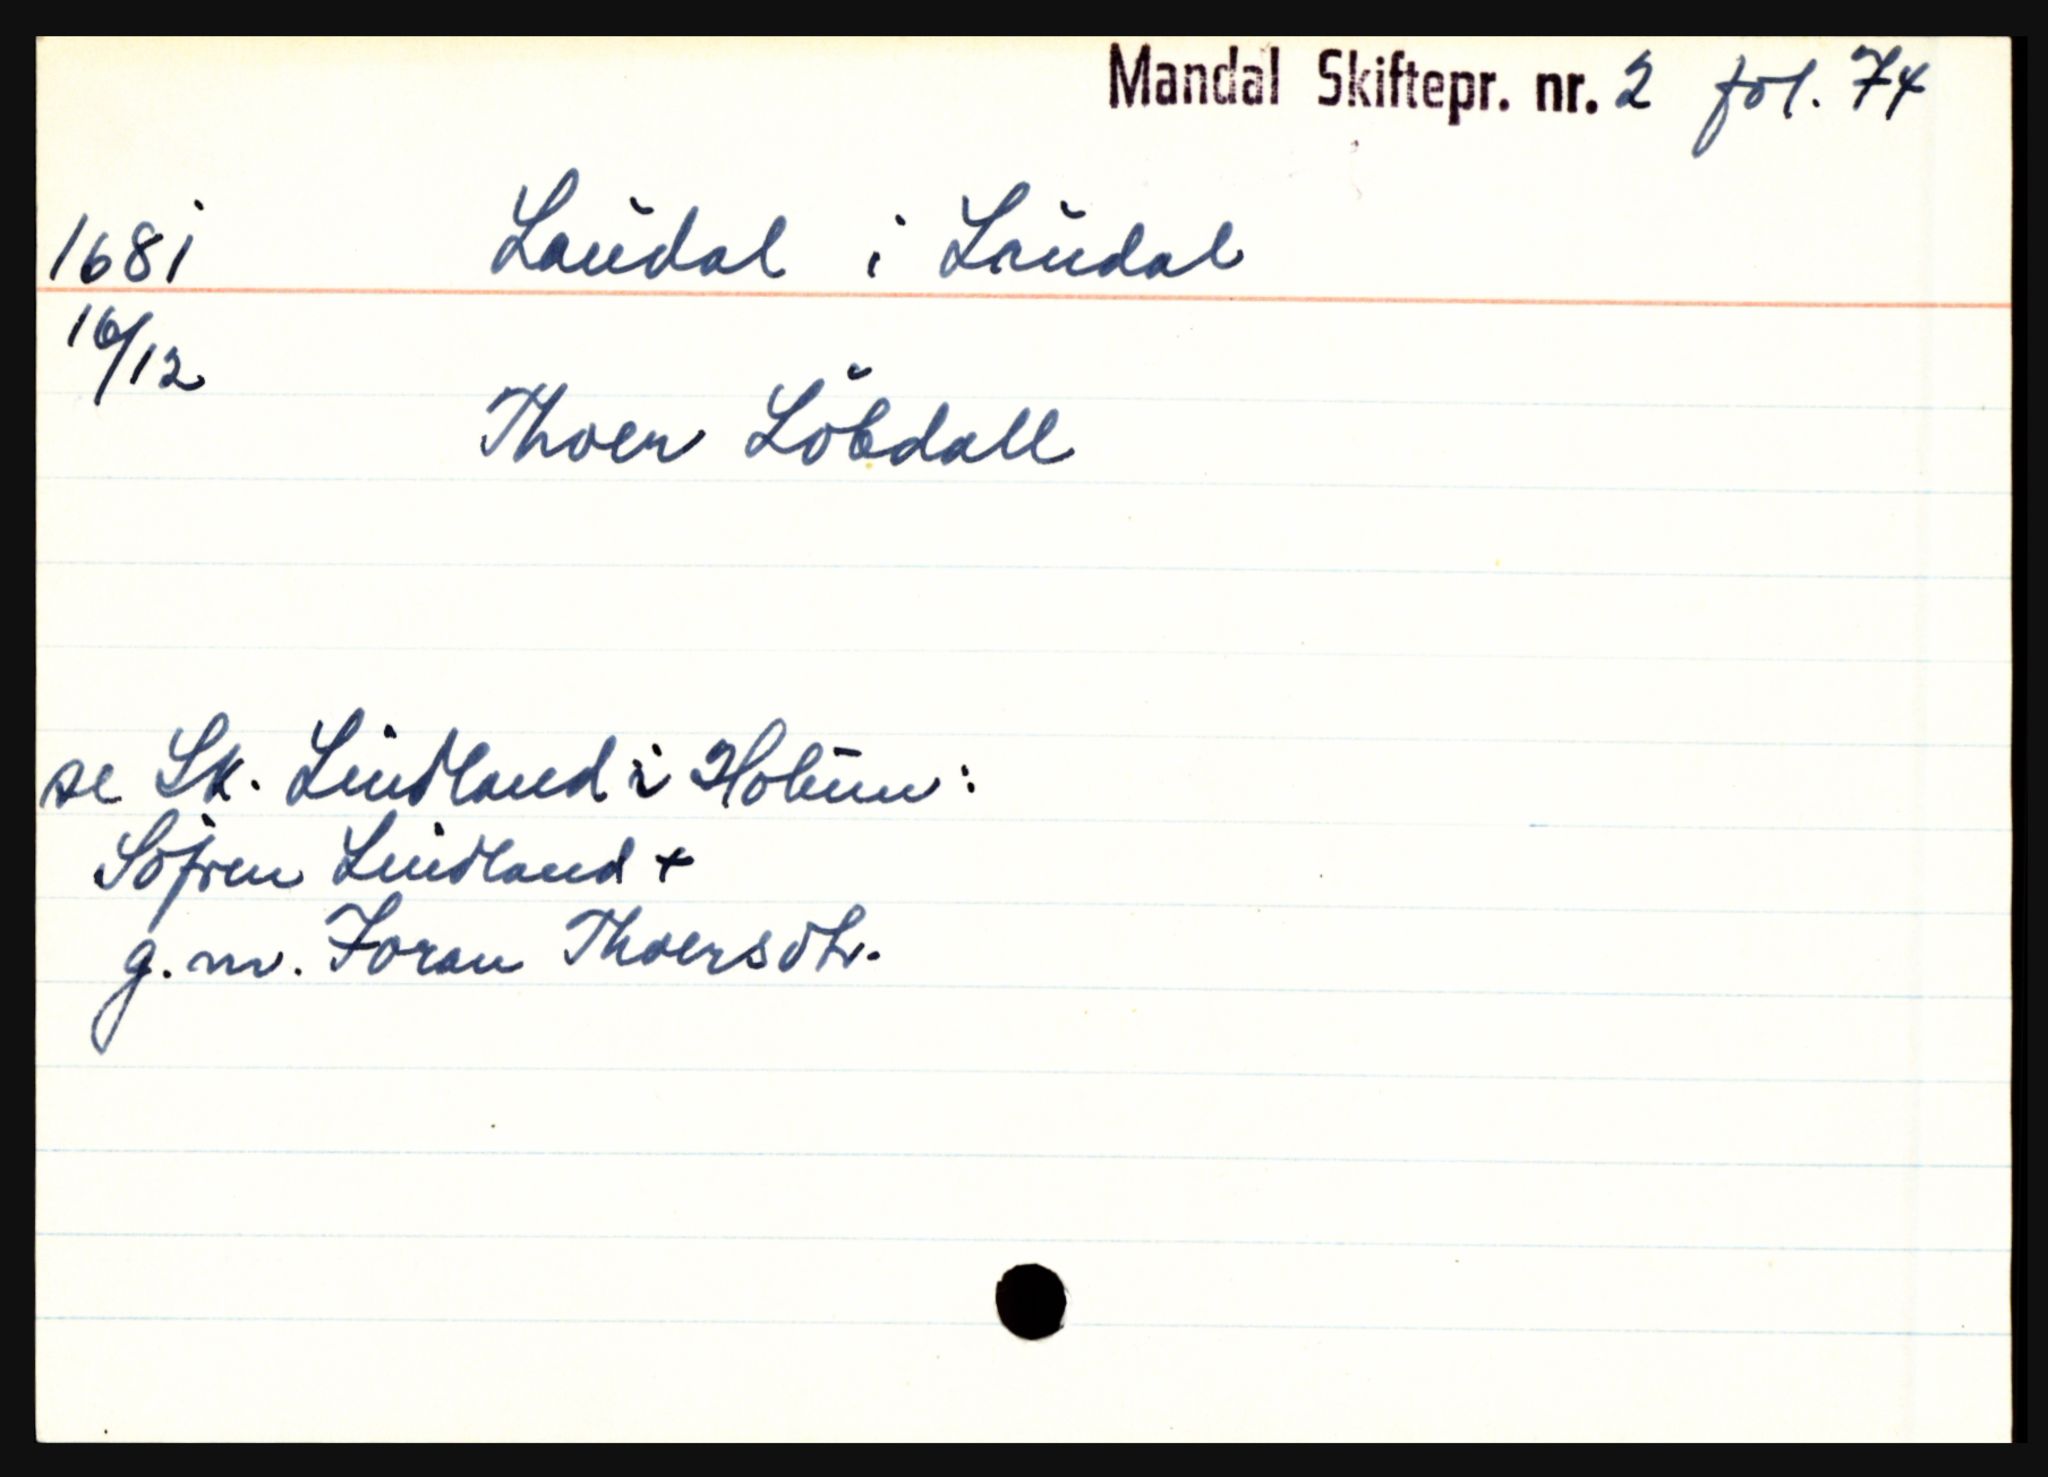 Mandal Skiftepr. nr. 2 fol. 74
1681 Laudal i Laudal
16/12
Thoer Löbdall
se Sk. Lindland i Holum:
Söfren Lindland +
g. m. Joran Thoersdtr.